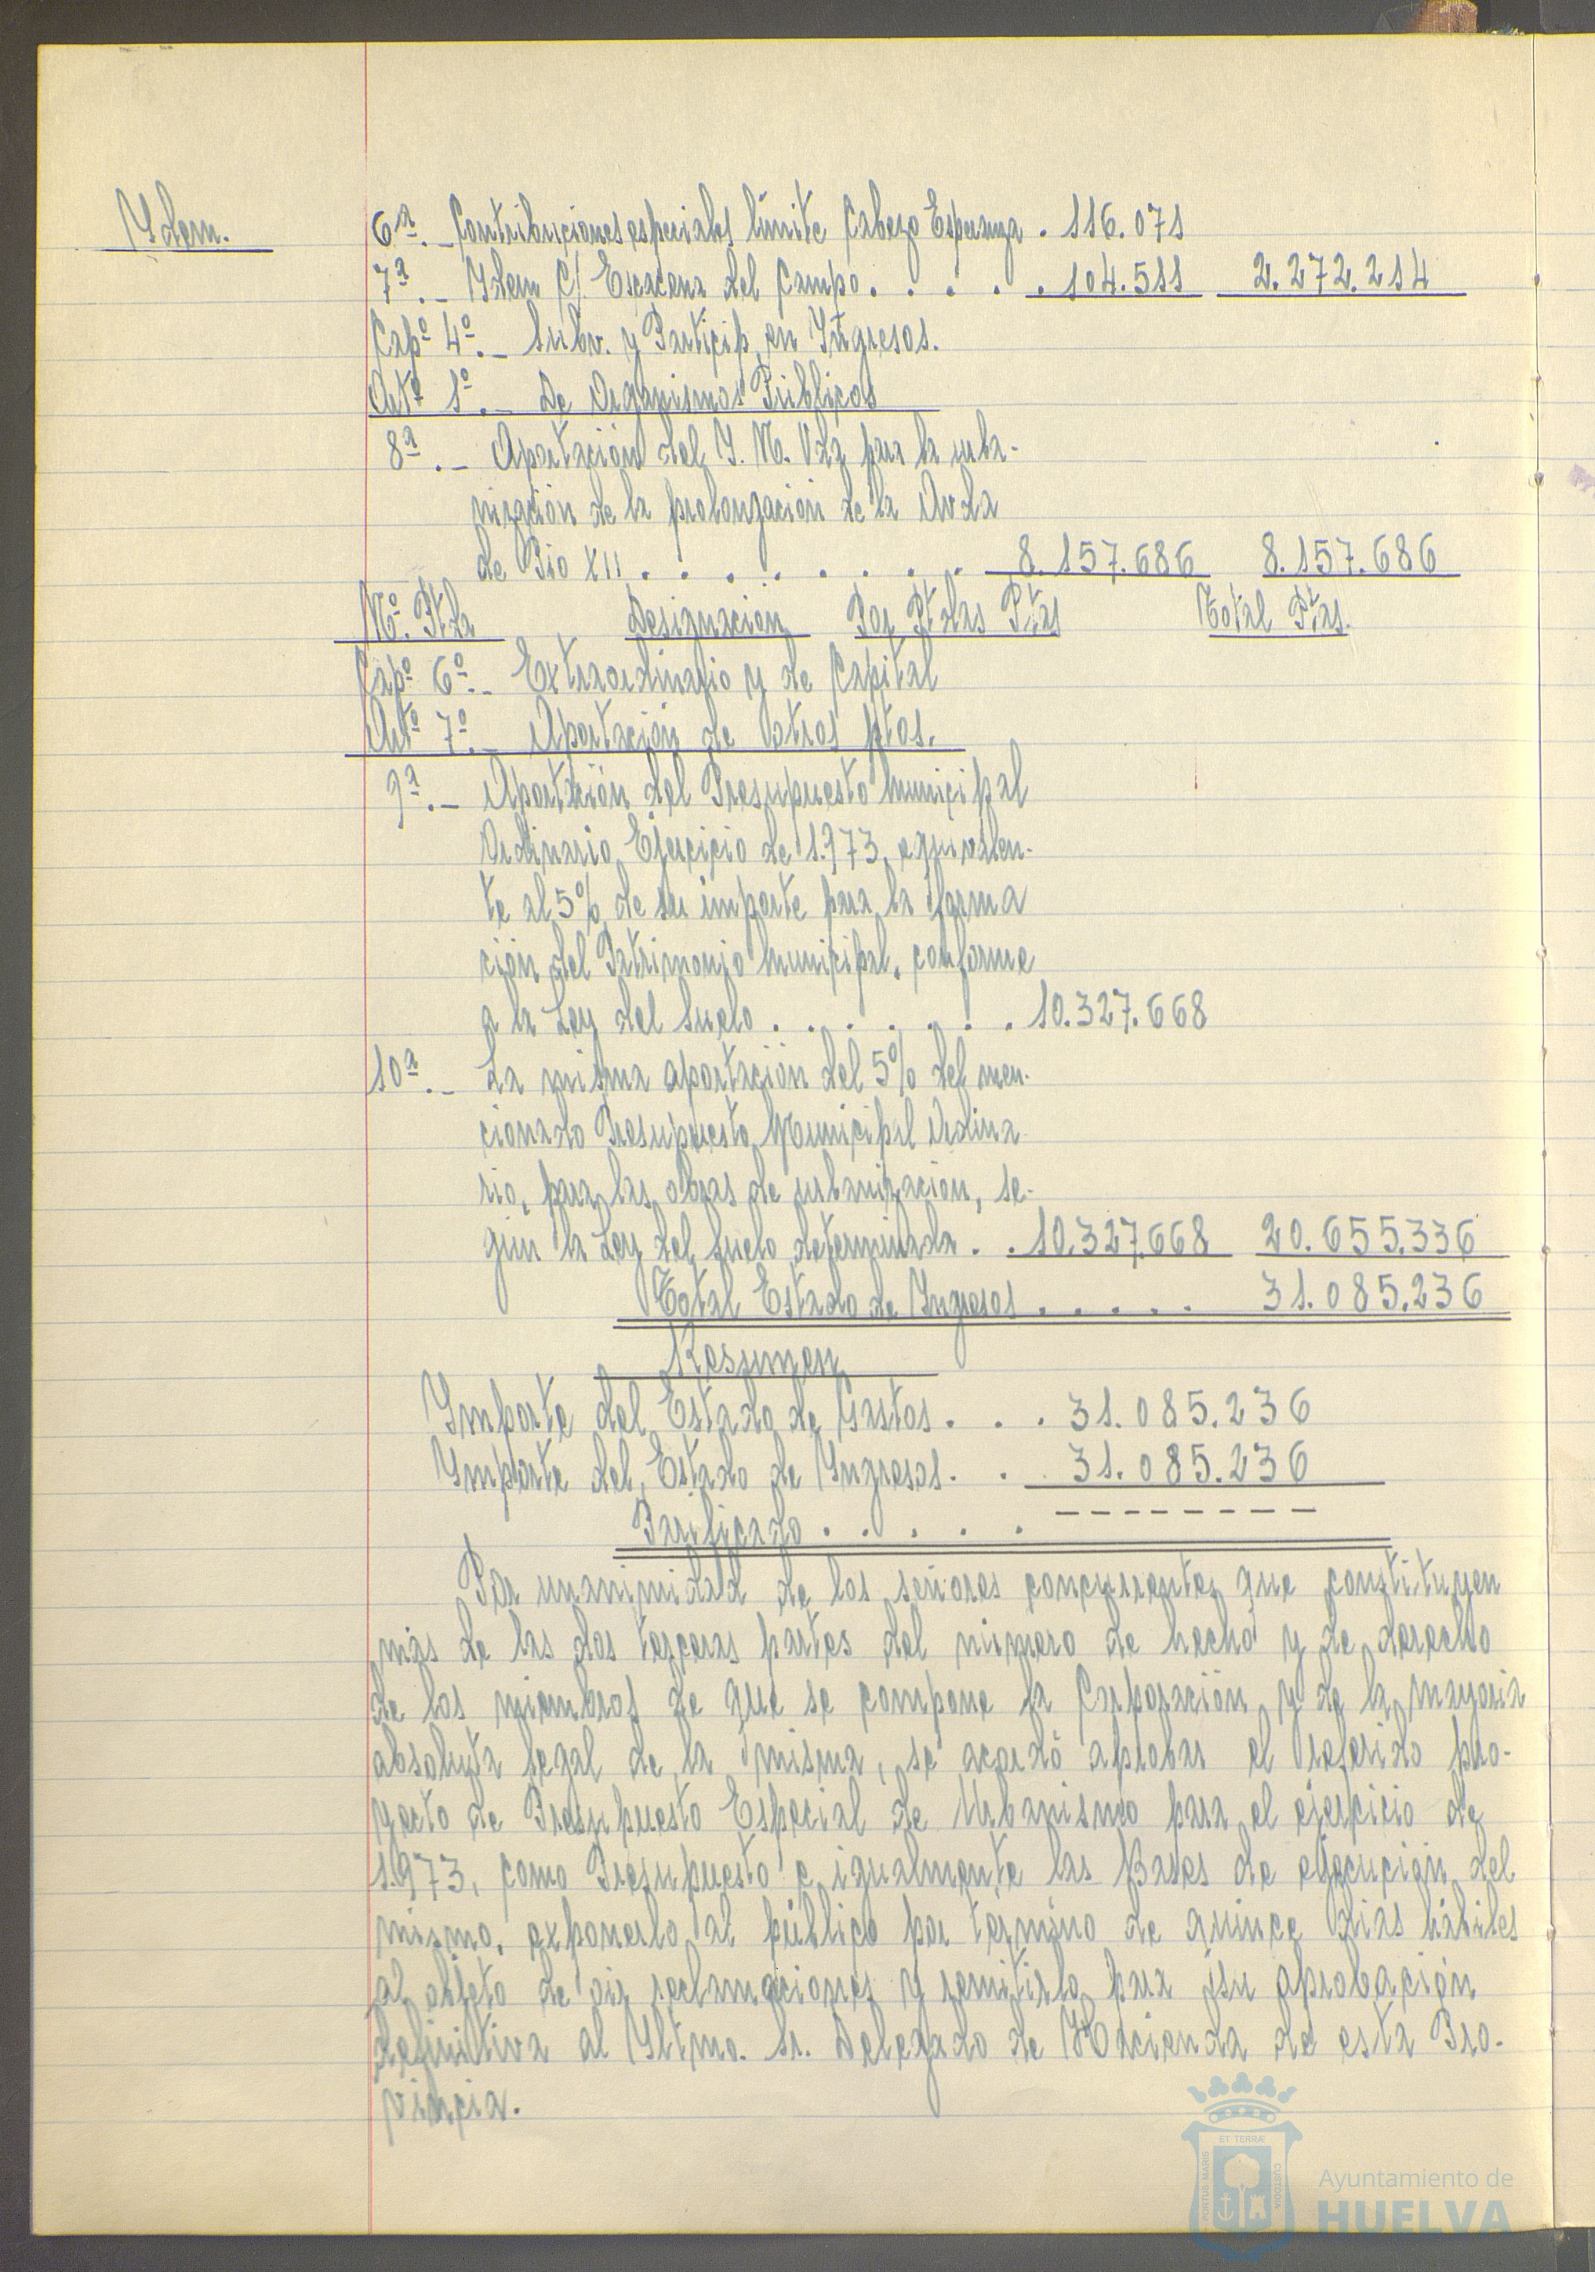 Ydem.
6ª.- Contribuciones especiales límite Cabezo Esperanza . 116.071
7ª.- Ydem C/. Escacena del Campo . . . . . 104.511 2.272.214
Capº 4º.- Subv. y Particip. en Ingresos.
Artº 1º.- De Organismos Públicos
8ª.- Aportación del Y. N. Vda para la urba-
nización de la prolongación de la Avda
de Pio XII . . . . . . . . 8.157.686 8.157.686
Nº. Ptda Designación Por Ptdas Ptas Total Ptas.
Capº 6º.- Extraordinario y de Capital
Artº 7º.- Aportación de Otros Ptos.
9ª.- Aportación del Presupuesto Municipal
Ordinario Ejercicio de 1.973, equivalen-
te al 5% de su importe para la forma
ción del Patrimonio Municipal, conforme
a la Ley del Suelo . . . . . . . 10.327.668
10ª.- La misma aportación del 5% del men-
cionado Presupuesto Municipal Ordina
rio, para las obras de urbanización, se-
gún la Ley del Suelo determinada . . 10.327.668 20.655.336
Total Estado de Ingresos . . . . . 31.085.236
Resumen
Ymporte del Estado de Gastos . . . 31.085.236
Ymporte del Estado de Yngresos . . . 31.085.236
Parificado . . . . . - - - - - - - - -
Por unanimidad de los señores concurrentes que constituyen
más de las dos terceras partes del número de hecho y de derecho
de los miembros de que se compone la Corporación y de la mayoria
absoluta legal de la misma, se acordó aprobar el referido pro-
yecto de Presupuesto Especial de Urbanismo para el ejercicio de
1.973, como Presupuesto e igualmente las Bases de ejecución del
mismo, exponerlo al público por término de quince dias hábiles
al objeto de oir reclamaciones y remitirlo para su aprobación
definitiva al Yltmo. Sr. Delegado de Hacienda de esta Pro-
vincia.
ET TERRÆ
PORTUS MARIS
CUSTODIA
Ayuntamiento de
HUELVA